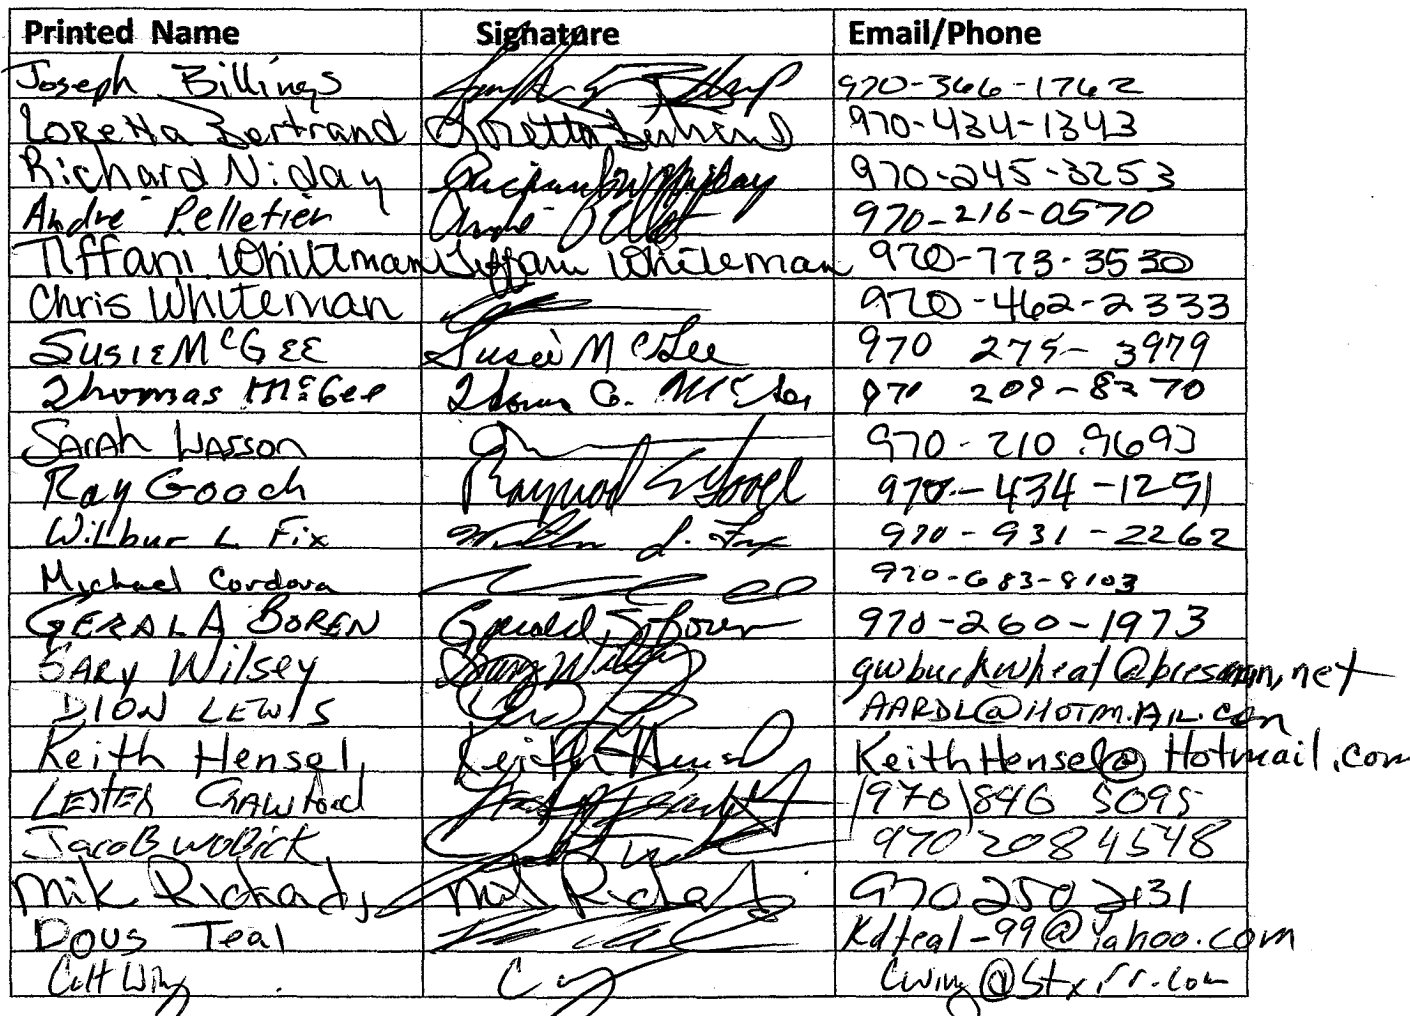 Printed Name Signature Email/Phone
Joseph Billings 970-366-1762
Loretta Bertrand Loretta Bertrand 970-434-1343
Richard Niday Richard W Niday 970-245-3253
Andre Pelletier Andre 970-216-0570
Tiffani Whiteman Tiffani Whiteman 970-773-3530
Chris Whiteman 970-462-2333
SUSIE McGEE Susie McGee 970 275-3979
Thomas McGee Thomas G. McGee 970 209-8270
SARAH WASSON 970-210.9693
Ray Gooch Raymond Gooch 970-434-1251
Wilbur L Fix L. Fix 970-931-2262
Michael Cordova 970-683-8103
GERALA BOREN Gerald Boren 970-260-1973
GARY Wilsey Gary Wilsey gwbuckwheat@bresnan.net
DION LEWIS AARDL@HOTMAIL.COM
Keith Hensel Keith Hensel KeithHensel@Hotmail.com
LESTER CRAWford (970)846 5095
JacoB woBick 970 208 4548
Mik Richards Mik Richards 970 250 2131
DOUS Teal Kdteal-99@Yahoo.com
Colt Wing C Cwing@Stxrr.com